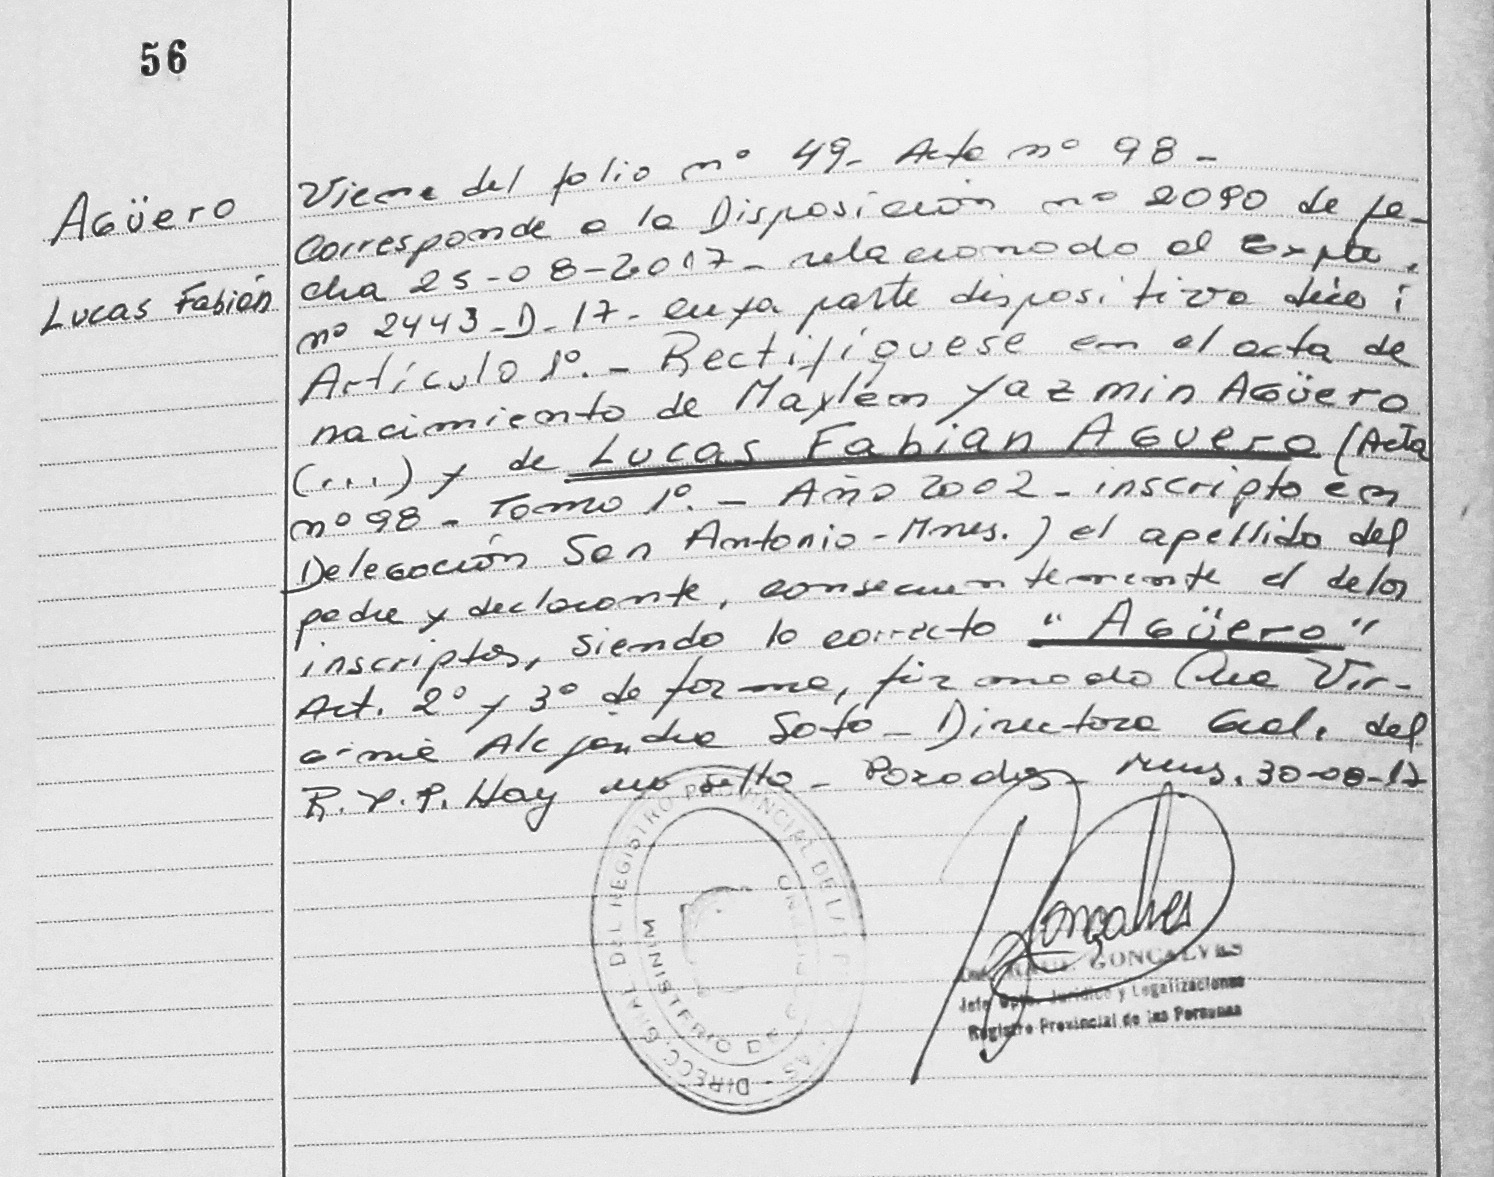 56
Agüero
Lucas Fabián
Viene del folio nº 49- Acta nº 98-
Corresponde a la Disposición nº 2090 de fe-
cha 25-08-2017- relacionado al Expte.
nº 2443-D-17- cuya parte dispositiva dice:
Artículo 1º.- Rectifíquese en el acta de
nacimiento de Maylén Yazmin Agüero
(...) y de Lucas Fabian Aguero (Acta
nº 98- Tomo 1º.- Año 2002- inscripto en
Delegación San Antonio-Mnes.) el apellido del
padre y declarante, consecuentemente el de los
inscriptos, siendo lo correcto "Agüero"
Art. 2º y 3º de forma, firmado Vir-
ginia Alejandra Soto- Directora Gral. del
R.P.P. Hay un sello- Posadas- Mnes. 30-08-17
DIRECC GRAL DEL REGISTRO PROVINCIAL DE LAS
MINISTERIO DE
Gonçalves
GONCALVES
Jefe Dpto. Jurídico y Legalizaciones
Registro Provincial de las Personas